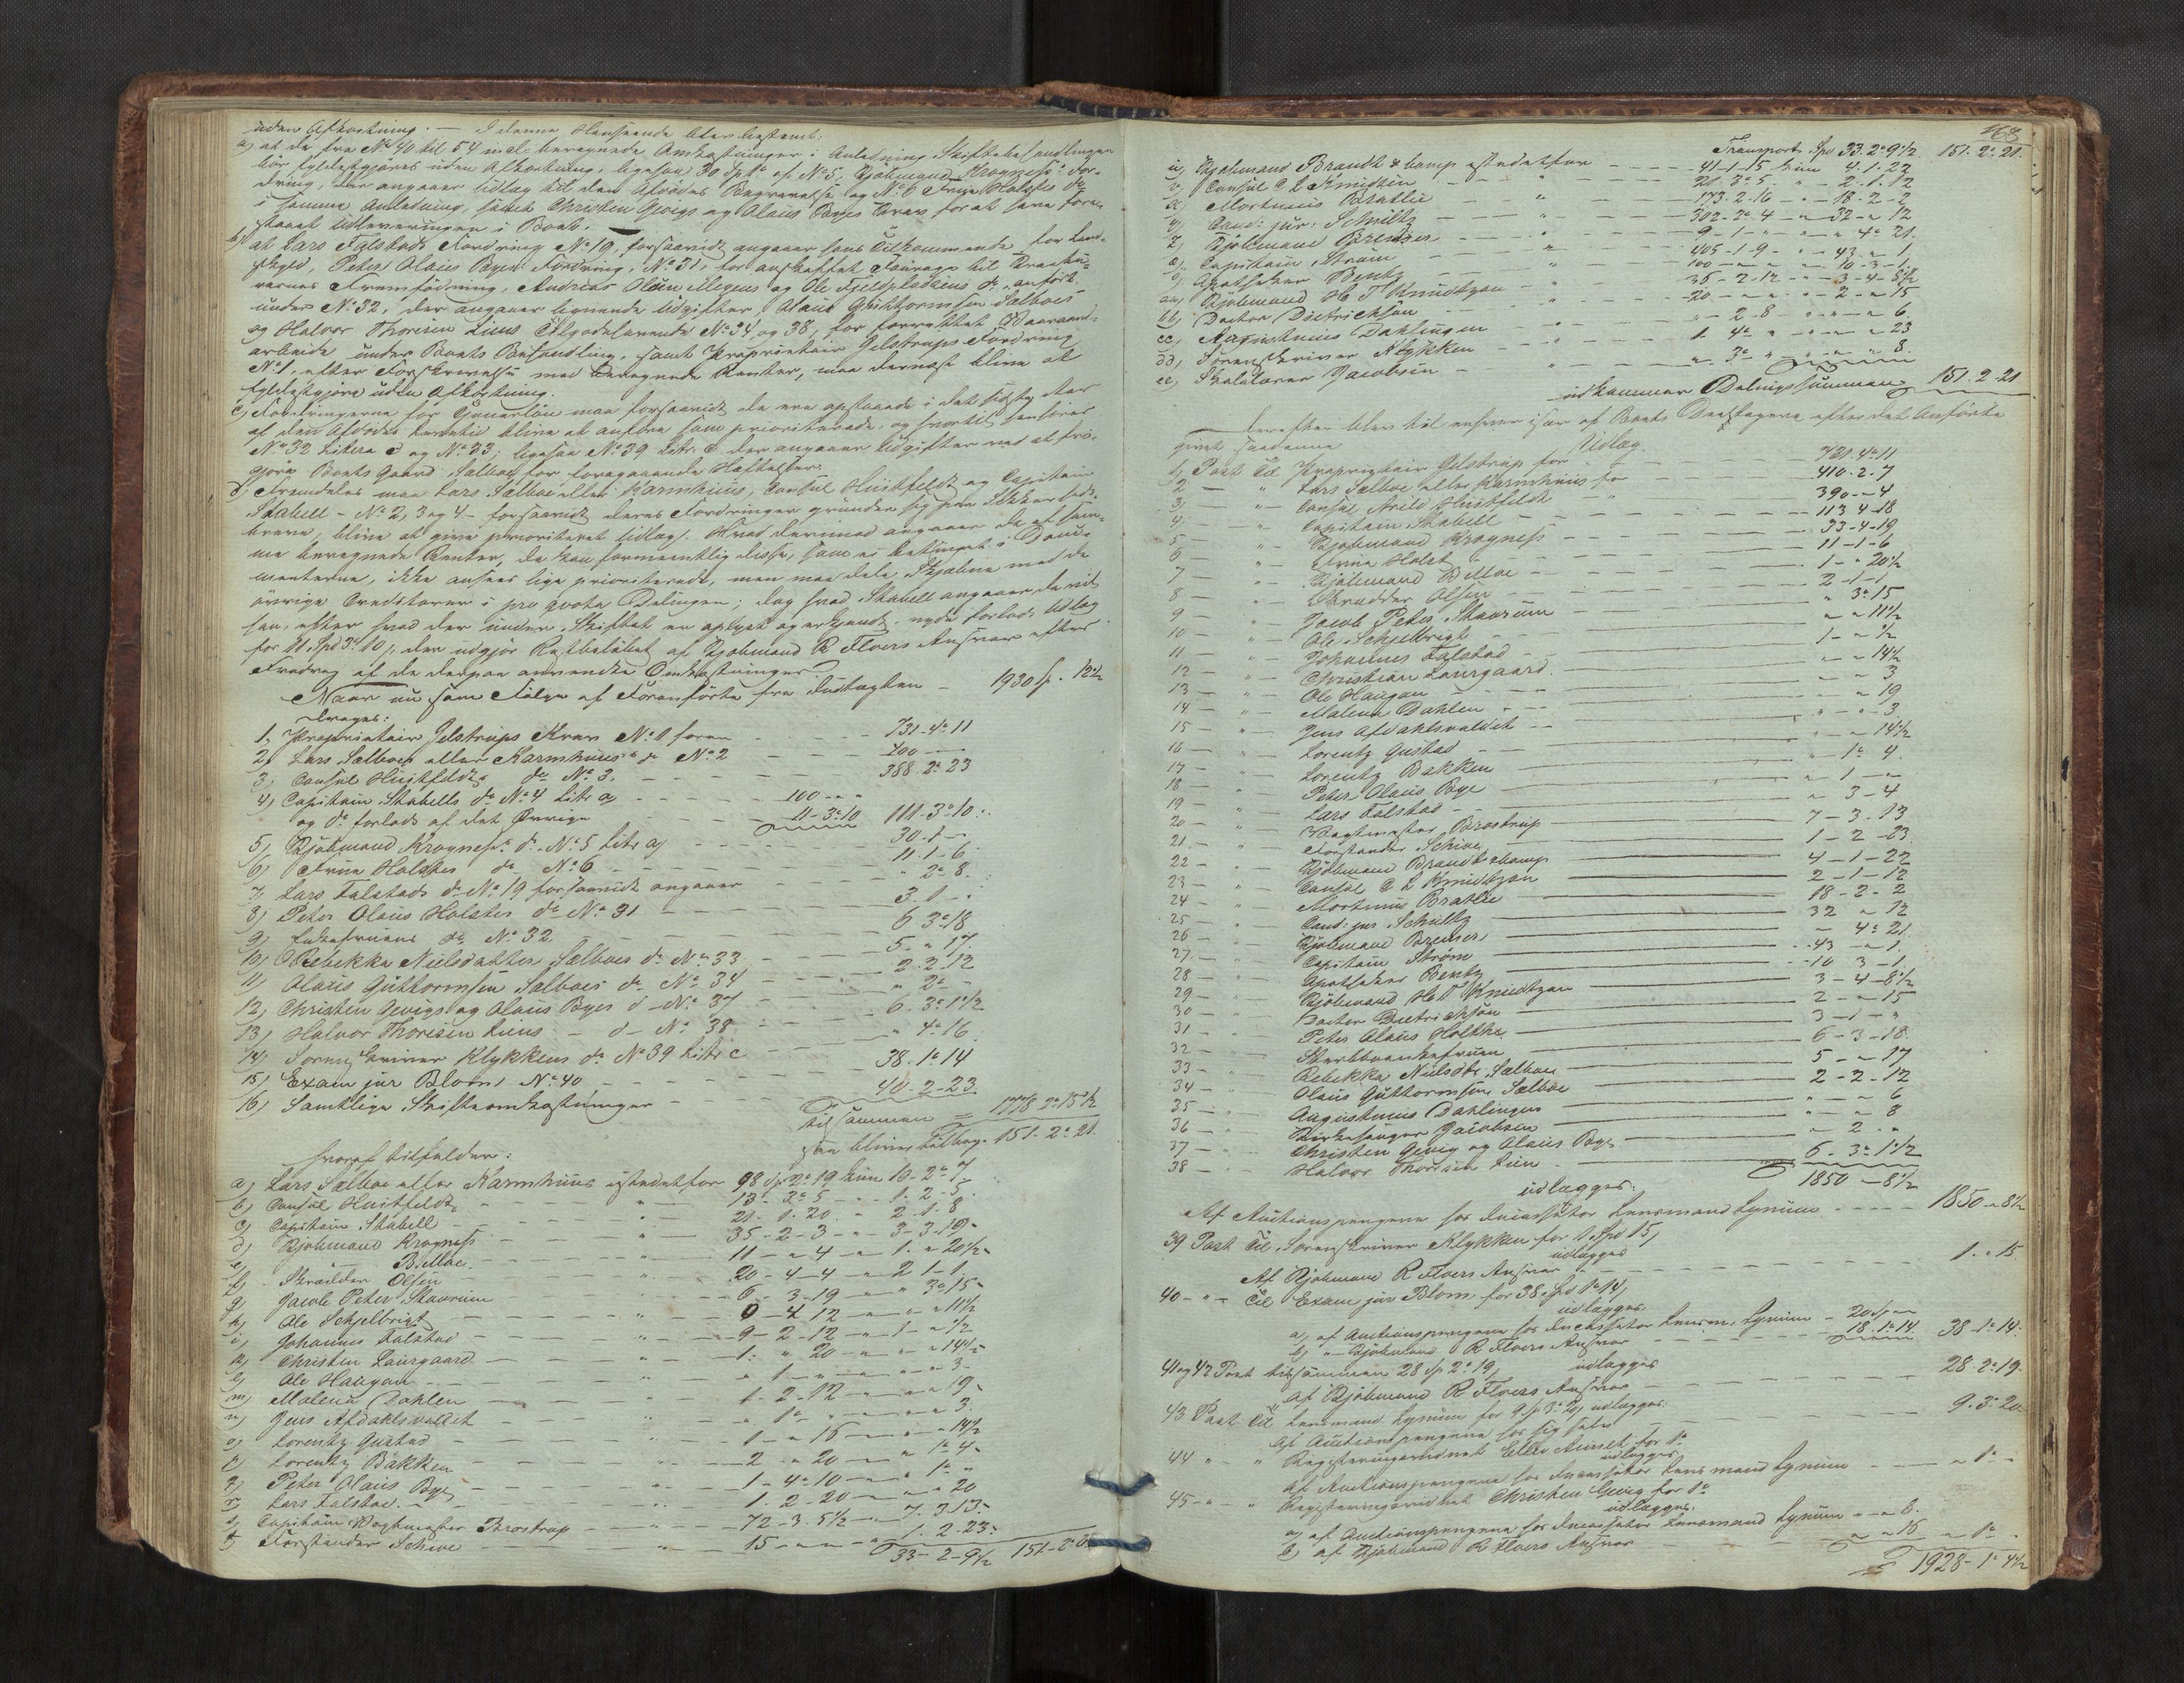 uden Afkortning. — I denne Henseende blev bestemt:
a) at de fra No 40 til 54 incl. beregnede Omkostninger i Anledning Skiftebehandlingen
bør fyldestgjøres uden Afkortning, ligesaa 30 Spd af No 5, Kjøbmand Krogness's For-
dring, der angaaer Udlæg til den Afdødes Begravelse og No 6 Frue Holstes do
i samme Anledning, samt Christen Gevigs og Olaus Byes Krav for at have fore-
staaet Udleveringen i Boet.
b) at Lars Falstads Fordring No 19, forsaavidt angaaer hans Tilkommende for Land-
skyld, Peter Olaus Byes Fordring, No 31, for anskaffet Fourage til Creatu-
rernes Fremfødning, Andreas Olsen og Ole Fjeldpladsens do anført
under No 32, der angaaer lignende Udgifter, Olaus Guthormsen Salboes
og Halvor Thoresen Liens Tilgodehavende No 34 og 38, for forrettet Gaards-
arbeide under Boets Behandling, samt Proprietair Jelstrups Fordring
No 1, efter Forskrivelse med beregnede Renter, maa dernæst blive at
fyldestgjøre uden Afkortning.
c) Fordringerne for Tjenerløn maa forsaavidt de ere opstaaede i det sidste Aar
af den Afdødes Levetid blive at anføre som prioriterede, og hertil henføres
No 32 Litera c og No 33; ligesaa No 39 Litr. c der angaaer Udgifter ved at fri-
gjøre Boets Gaard Salboe for foregaaende Hæftelser.
d) Fremdeles maa Lars Salboe eller Karmhuus, Consul Huitfeldt og Capitain
Stabell – No 2, 3 og 4 – forsaavidt deres Fordringer grunder sig paa Sikkerheds-
breve, blive at give prioriteret Udlæg. Hvad derimod angaaer de af sam-
me beregnede Renter, da kan formeentlig disse, som ei betinget i Docu-
menterne, ikke ansees lige prioriterede, men maa dele Skjæbne med de
øvrige Creditorer i pro qvota Delingen; dog hvad Stabell angaaer da vil
han, efter hvad der under Skiftet er oplyst og erkjendt, nyde forlods Udlæg
for 11 Spd 3 10, der udgjør Restbeløbet af Kjøbmand R Floers Ansvar efter
Fradrag af de derpaa anvendte Omkostninger.
Naar nu som Følge af Foranførte fra Indtægten – 1930 Sp - 12½
drages:
1, Proprietair Jelstrups Krav No 1 foran - - - 731-4-11
2, Lars Salboes eller Karmhuus's do No 2 - - - 400 - -
3, Consul Huitfeldts do No 3. - - - 388-2-23
4, Capitain Stabells do No 4 Litr a, - - - 100 - -
og do forlods af det Øvrige - - - 11-3-10 111-3-10
5, Kjøbmand Krogness's do No 5 Litr a, - - - 30-1-
6, Frue Holstes do No 6 - - - 11-1-6
7, Lars Falstads do No 19 forsaavidt angaaer - - - " 2-8.
8, Peter Olaus Holstes do No 31 - - - 3-1-
9, Enkefruens do No 32 - - - 6-3-18
10, Rebekka Nielsdatter Salboes do No 33 - - - 5-"-17
11, Olaus Guthormsen Salboes do No 34 - - - 2-2-12
12, Christen Gevigs og Olaus Byes do No 37 - - - " 2 -
13, Halvor Thoresen Liens – do – No 38 - - - 6-3-1½
14, Sorenskriver Klykkens do No 39 Litr c - - - " 4-16
15, Exam jur Bloms No 40 - - - 38-1-14
16, Samtlige Skifteomkostninger - - - 40-2-23
tilsammen = 1778-2-15½
saa bliver tilbage 151-2-21.
hvoraf tilfalder:
a, Lars Salboe eller Karmhuus istedetfor 98 Sp 2-19 kun 10-2-7
b, Consul Huitfeldt - " 13-3-5 - 1-2-5
c, Capitain Stabell - " 21-1-20 " 2-1-8
d, Kjøbmand Krogness - " 35-2-3 - " 3-3-19
e, — Billoe - " 11-"-4 - " 1-"-20½
f, Skrædder Olsen - " 20-4-4 - " 2-1-1
g, Jacob Peter Skavrum - " 6-3-19 - " 3-15
h, Ole Schjelbrigt - " 0-4-12 - " " 11½
i, Johannes Falstad - " 9-2-12 - 1-"-½
k, Christen Laurgaard - " 1-"-20 - " 14½
l, Ole Haugan - " " 1 - - " 3
m, Malena Dahlen - " 1-2-12 - " 19
n, Jens Afdahlsvaldet - " " 1 - " 3
o, Lorentz Gustad - " 1-"-16 - " 14½
p, Lorentz Bakken - " 2-"-20 - " 1-4
q, Peter Olaus Bye - " 1-4-10 - " 1 "
r, Lars Falstad - " 1-2-20 - " 20
s, Capitain Vagtmester Brostrup - " 72-3-5½ - 7-3-13
t, Forstander Schive - " 15 - - " 1-2-23
33-2-9½ 151-2-21
468
Transport Spd 33-2-9½. 151-2-21.
u, Kjøbmand Brandt & Comp istedetfor - - 41-1-15 kun 4-1-22
v, Consul C L Knudtzon - " - 21-3-5 " - 2-1-12
x, Mortinus Bratlie - " - 173-2-16 - " - 18-2-2
y, Cand: jur: Schultz - " - 302-2-4 - " 32-"-12
z, Kjøbmand Bremser - " - 9-1 - " - " 4-21.
æ, Capitain Strøm - " - 405-1-9 - " 43-"-1
ø, Apotheker Bentz - " - 100 - - " 10-3-1
aa, Kjøbmand H T Knudtzon - " - 35-2-12 - " - 3-4-8½
bb, Doctor Dietrichson - " - 20 - - " - 2-"-15
cc, Augustinus Dahlingen - " - " 2-8 - " " 6.
dd, Sorenskriver Klykken - " - 1-4 " - " " 23
ee, Skolelærer Jacobsen - " - " 3 " - " " 8.
udkommer Delingssummen 151-2-21
Derefter blev til enhver især af Boets Deeltagere efter det Anførte
givet saadanne Udlæg.
1, Post Til Proprietair Jelstrup for - - 731-4-11
2 — " Lars Salboe eller Karmhuus for - - 410-2-7
3, — " Consul Arild Huitfeldt - " - 390-"-4
4, — " Capitain Stabell - - 113-4-18
5 — " Kjøbmand Krogness - - 33-4-19
6 — " Frue Holst - - 11-1-6
7 — " Kjøbmand Billoe - - 1-"-20½
8 — " Skrædder Olsen - - 2-1-1
9 — " Jacob Peter Skavrum - - " 3-15
10 — " Ole Schjelbrigt - - " " 11½
11 — " Johannes Falstad - - 1-"-½
12 — " Christian Laurgaard - - " " 14½
13 — " Ole Haugan - - " " 3
14 — " Malena Dahlen - - " " 19
15 — " Jens Afdahlsvaldet - - " " 3
16 — " Lorentz Gustad - - " " 14½
17 — " Lorentz Bakken - - " 1-4
18 — " Peter Olaus Bye - - " 1 - "
19 — " Lars Falstad - - " 3-4
20 — " Vagtmester Brostrup - - 7-3-13
21 — " Forstander Schive - - 1-2-23
22 — " Kjøbmand Brandt & Comp - - 4-1-22
23 — " Consul C L Knudtzon - - 2-1-12
24 — " Mortinus Bratlie - - 18-2-2
25 — " Cand: jur Schultz - - 32 " 12
26 — " Kjøbmand Bremser - - " 4-21
27 — " Capitain Strøm - - 43-"-1
28 — " Apotheker Bentz - - 10-3-1
29 — " Kjøbmand H T Knudtzon - - 3-4-8½
30 — " Doctor Dietrichson - - 2-"-15
31 — " Peter Olaus Holthe - - 3-1-"
32 — " Sterbboenkefruen - - 6-3-18
33 — " Rebekka Nielsdtr Salboe - - 5-"-17
34 — " Olaus Guthormsen Salboe - - 2-2-12
35 — " Augustinus Dahlingen - - " " 6
36 — " Kirkesanger Jacobsen - - " " 8
37 — " Christen Gevig og Olaus Bye - - " 2 "
38 — " Halvor Thoresen Lien - - 6-3-1½
udlægges: 1850-"-8½
Af Auctionspengene hos Incassator Lensmand Lynum - - - 1850-"-8½
39 Post Til Sorenskriver Klykken for 1 Spd 15,
udlægges
Af Kjøbmand R Floers Ansvar - - - 1-"-15
40 — " — Til Exam jur Blom for 38 Spd 1-14,
udlægges:
a, af Auctionspengene hos Incassator Lensm. Lynum - 20 Sp - "
b, " Kjøbmand R Floers Ansvar - - 18-1-14 38-1-14.
41 og 42 Post tilsammen 28 Sp 2-19, udlægges
Af Kjøbmand R Floers Ansvar - - - 28-2-19.
43 Post Til Lensmand Lynum for 9 Sp 3-20, udlægges:
Af Auctionspengene hos sig selv - - - 9-3-20
44 " " Registreringsvidnet Ellev Aunet for 1
udlægges
Af Auctionspengene hos Incassator Lensmand Lynum - - " 1 -
45 - " - " Registreringsvidnet Christen Gevig for 1
udlægges:
a, af Auctionspengene hos Incassator Lensmand Lynum " - " 8.
b, af Kjøbmand R Floers Ansvar - - " " 16 " 1 -
1928-1-4½